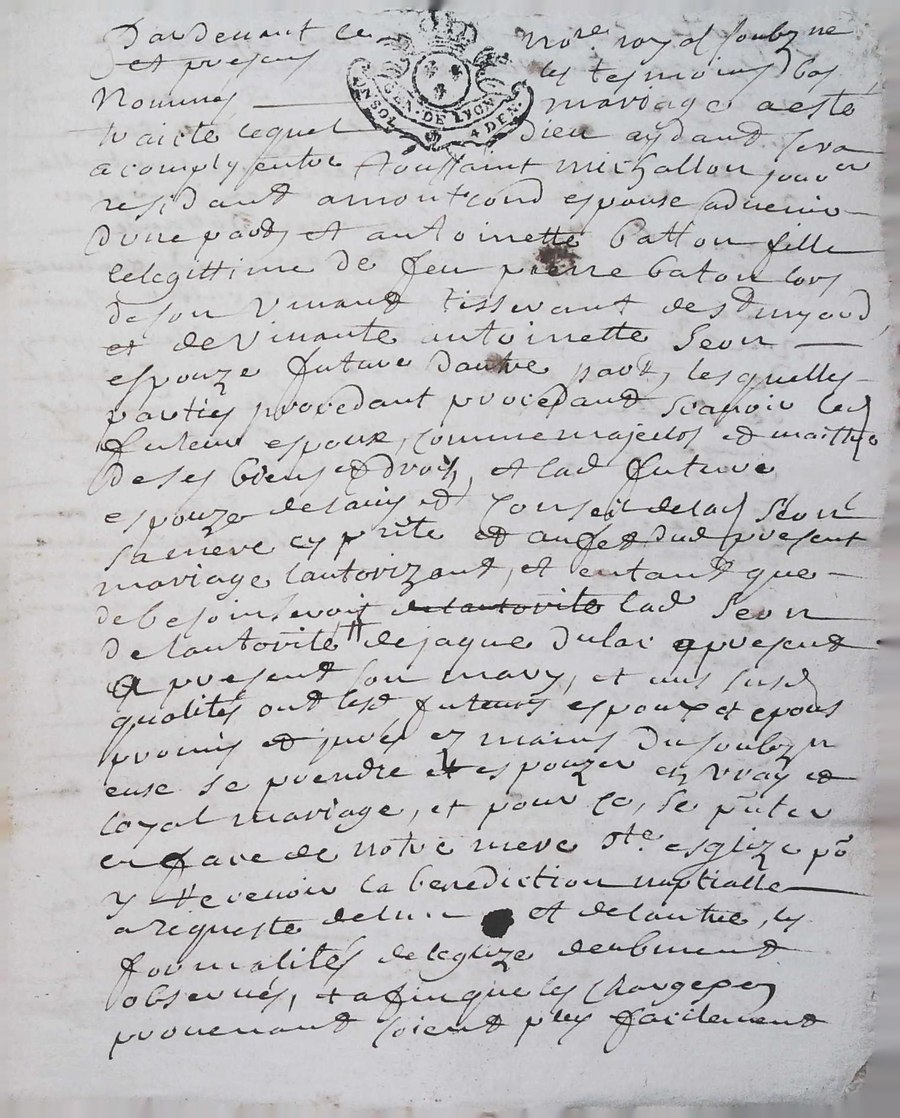 Pardevant le notre royal soubzne
et presens les tesmoins bas
Nommes mariage a esté
traicté lequel dieu aydant sera
acomply entre Toussaint michallon
residant a montrond espouse advenir
dune part et antoinette batton fille
legittime de feu pierre baton lors
de son vivant tisserant de St
et de vivante antoinette Seon
espouze future dautre part, lesquelles
parties procedant procedant scavoir led
futeur espoux, comme majeur et maittre
de ses biens et drois, et lad future
espouze de lavis et conseil de lad Seon
sa mere cy pnte et au fet dud present
mariage lautorizant, et entant que
de besoin seroit de lautorité lad Seon
de lautorité de jaque dulac apresent
apresent son mary, et aus susd
qualités ont lesd futeurs espoux et epous
promis et jures ez mains du soubzn
euse se prendre et espouzer en vray et
loyal mariage, et pour ce, se pnter
en face de notre mere Ste esglize pr
y recevoir la benediction nuptialle
a requeste de lun et de lautre, les
formalités de leglize deubment
observés, et afin que les charges en
provenant soient plus facilement
INSOL GEN. DE LYON 4 DEN.